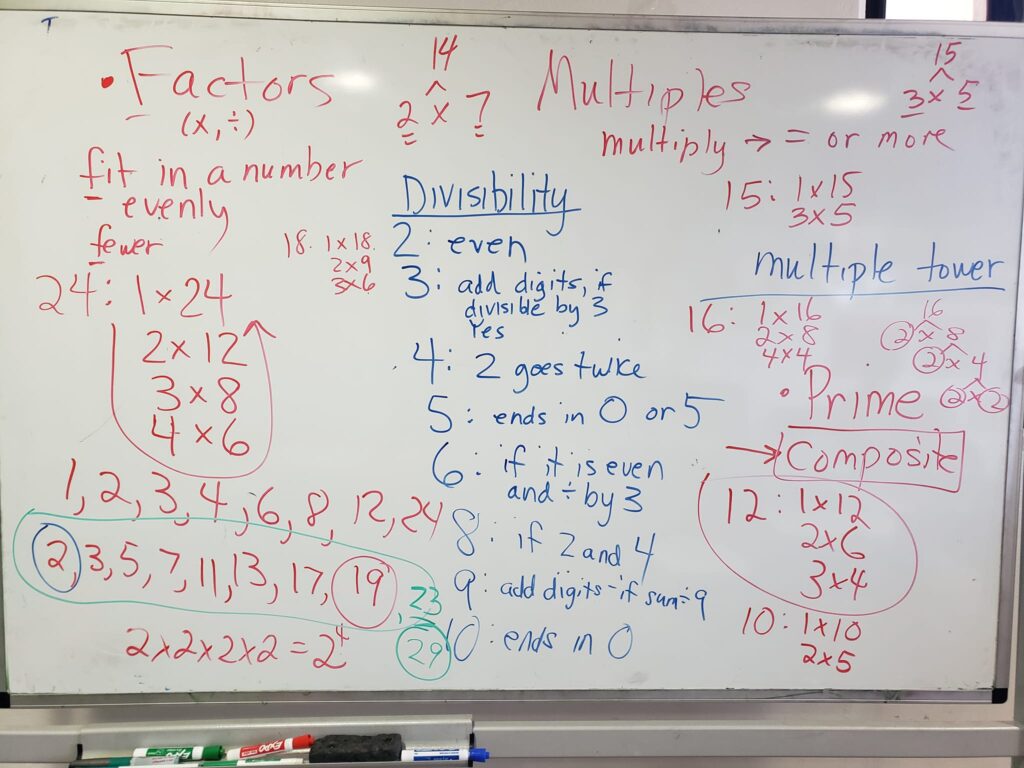 T
• Factors
(x, ÷)
fit in a number
evenly
fewer
24: 1 x 24
2 x 12
3 x 8
4 x 6
1, 2, 3, 4, 6, 8, 12, 24
2, 3, 5, 7, 11, 13, 17, 19, 23
29
2x2x2x2 = 2⁴
18. 1 x 18.
2x9
3x6
14
2 x 7
Divisibility
2: even
3: add digits, if
divisible by 3
Yes
4: 2 goes twice
5: ends in 0 or 5
6: if it is even
and ÷ by 3
8: if 2 and 4
9: add digits - if sum ÷ 9
10: ends in 0
Multiples
multiply → = or more
15
3 x 5
15: 1 x 15
3 x 5
multiple tower
16: 1 x 16
2 x 8
4 x 4
16
2 x 8
2 x 4
2 x 2
• Prime
→ Composite
12: 1x12
2x6
3x4
10: 1x10
2x5
EXPO